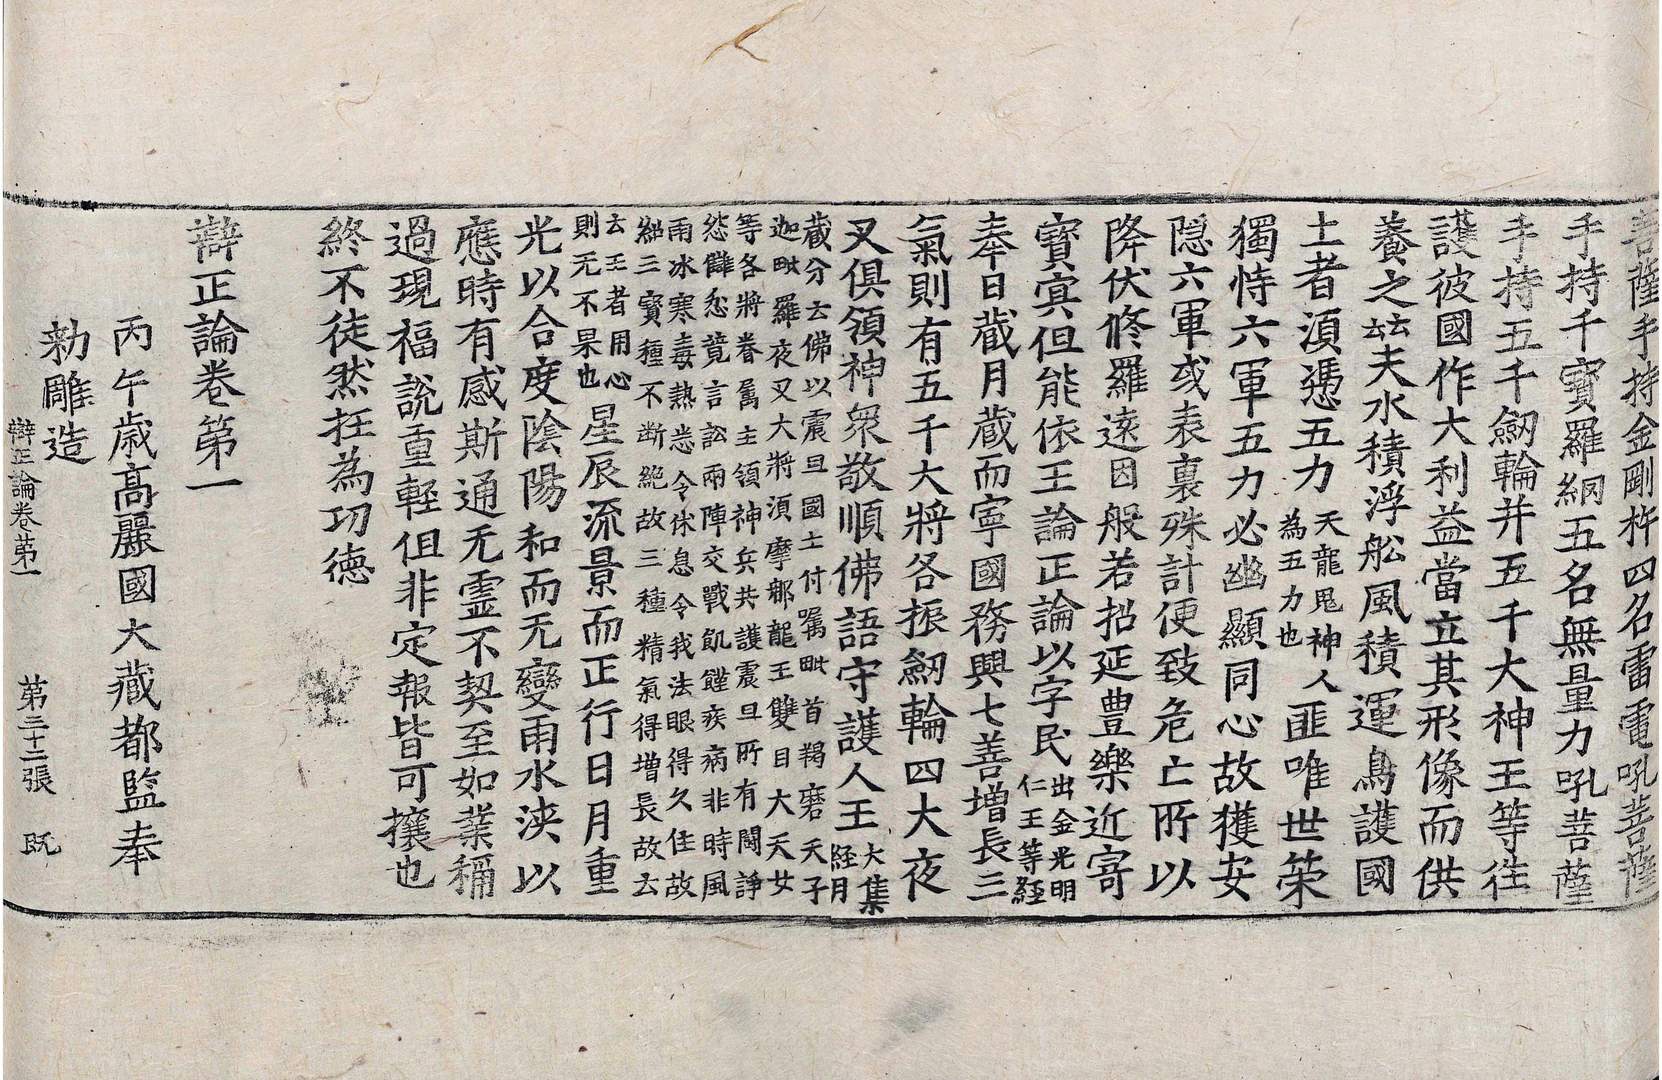 菩薩手持金剛杵四名雷電吼菩薩
手持千寶羅網五名無量力吼菩薩
手持五千劒輪并五千大神王等往
護彼國作大利益當立其形像而供
養之云云夫水積浮舩風積運鳥護國
土者湏憑五力天龍鬼神人為五力也匪唯世荣
獨恃六軍五力必幽顯同心故獲安
隠六軍或表裏殊計便致危亡所以
降伏脩羅遠因般若招延豊樂近寄
寶㝠但能依王論正論以字民出金光明仁王等経
奉日蔵月蔵而寧國務興七善増長三
氣則有五千大将各振劒輪四大夜
叉俱領神衆敬順佛語守護人王大集経月
蔵分云佛以震旦國土付囑毗首羯磨天子
迦毗羅夜叉大将湏摩那龍王雙目大天女
等各將眷属主領神兵共護震旦所有閗諍
怨讎忿競言訟兩陣交戰飢饉疾病非時風
雨冰寒毒熱悉令休息令我法眼得久住故
紹三寳種不断絶故三種精氣得増長故云
云王者用心則无不果也星辰流景而正行日月重
光以合度陰陽和而无變雨水浹以
應時有感斯通无霊不契至如業稱
過現福說重輕但非定報皆可攘也
終不徒然抂為功徳
辯正論卷第一
丙午歳高麗國大藏都監奉
勑雕造
辯正論卷第一　第三十二張　既